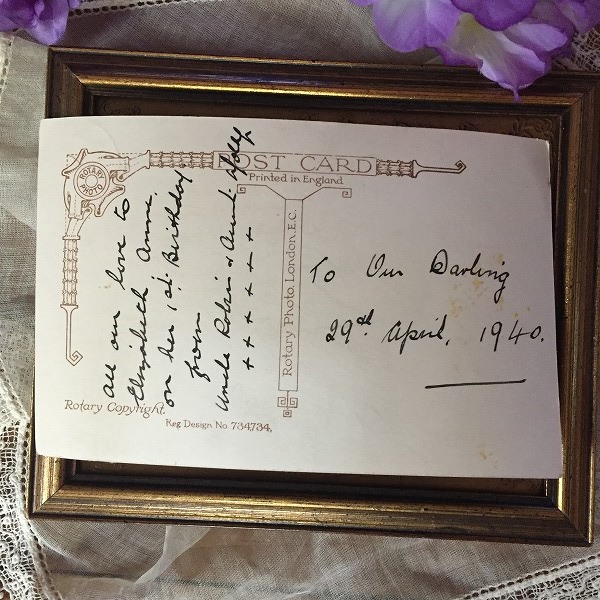 POST CARD
Printed in England
ROTARY PHOTO
Rotary Photo, London, E.C.
All our love to
Elizabeth Anne.
on her 1st Birthday
from
Uncle Robin & Aunt Holly.
+ + + + + + +
To Our Darling
29th April, 1940.
Rotary Copyright.
Reg Design No 734734,